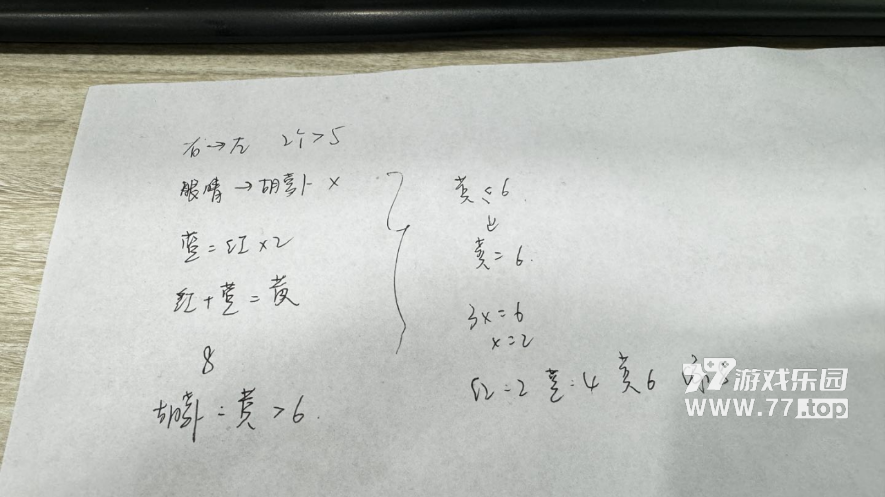 右→左 2个>5
眼睛→胡萝卜 x
蓝=红×2
红+蓝=黄
8
胡萝卜=黄>6.
黄≤6
黄=6.
3x=6
x=2
红=2 蓝=4 黄6
77游戏乐园
www.77.top